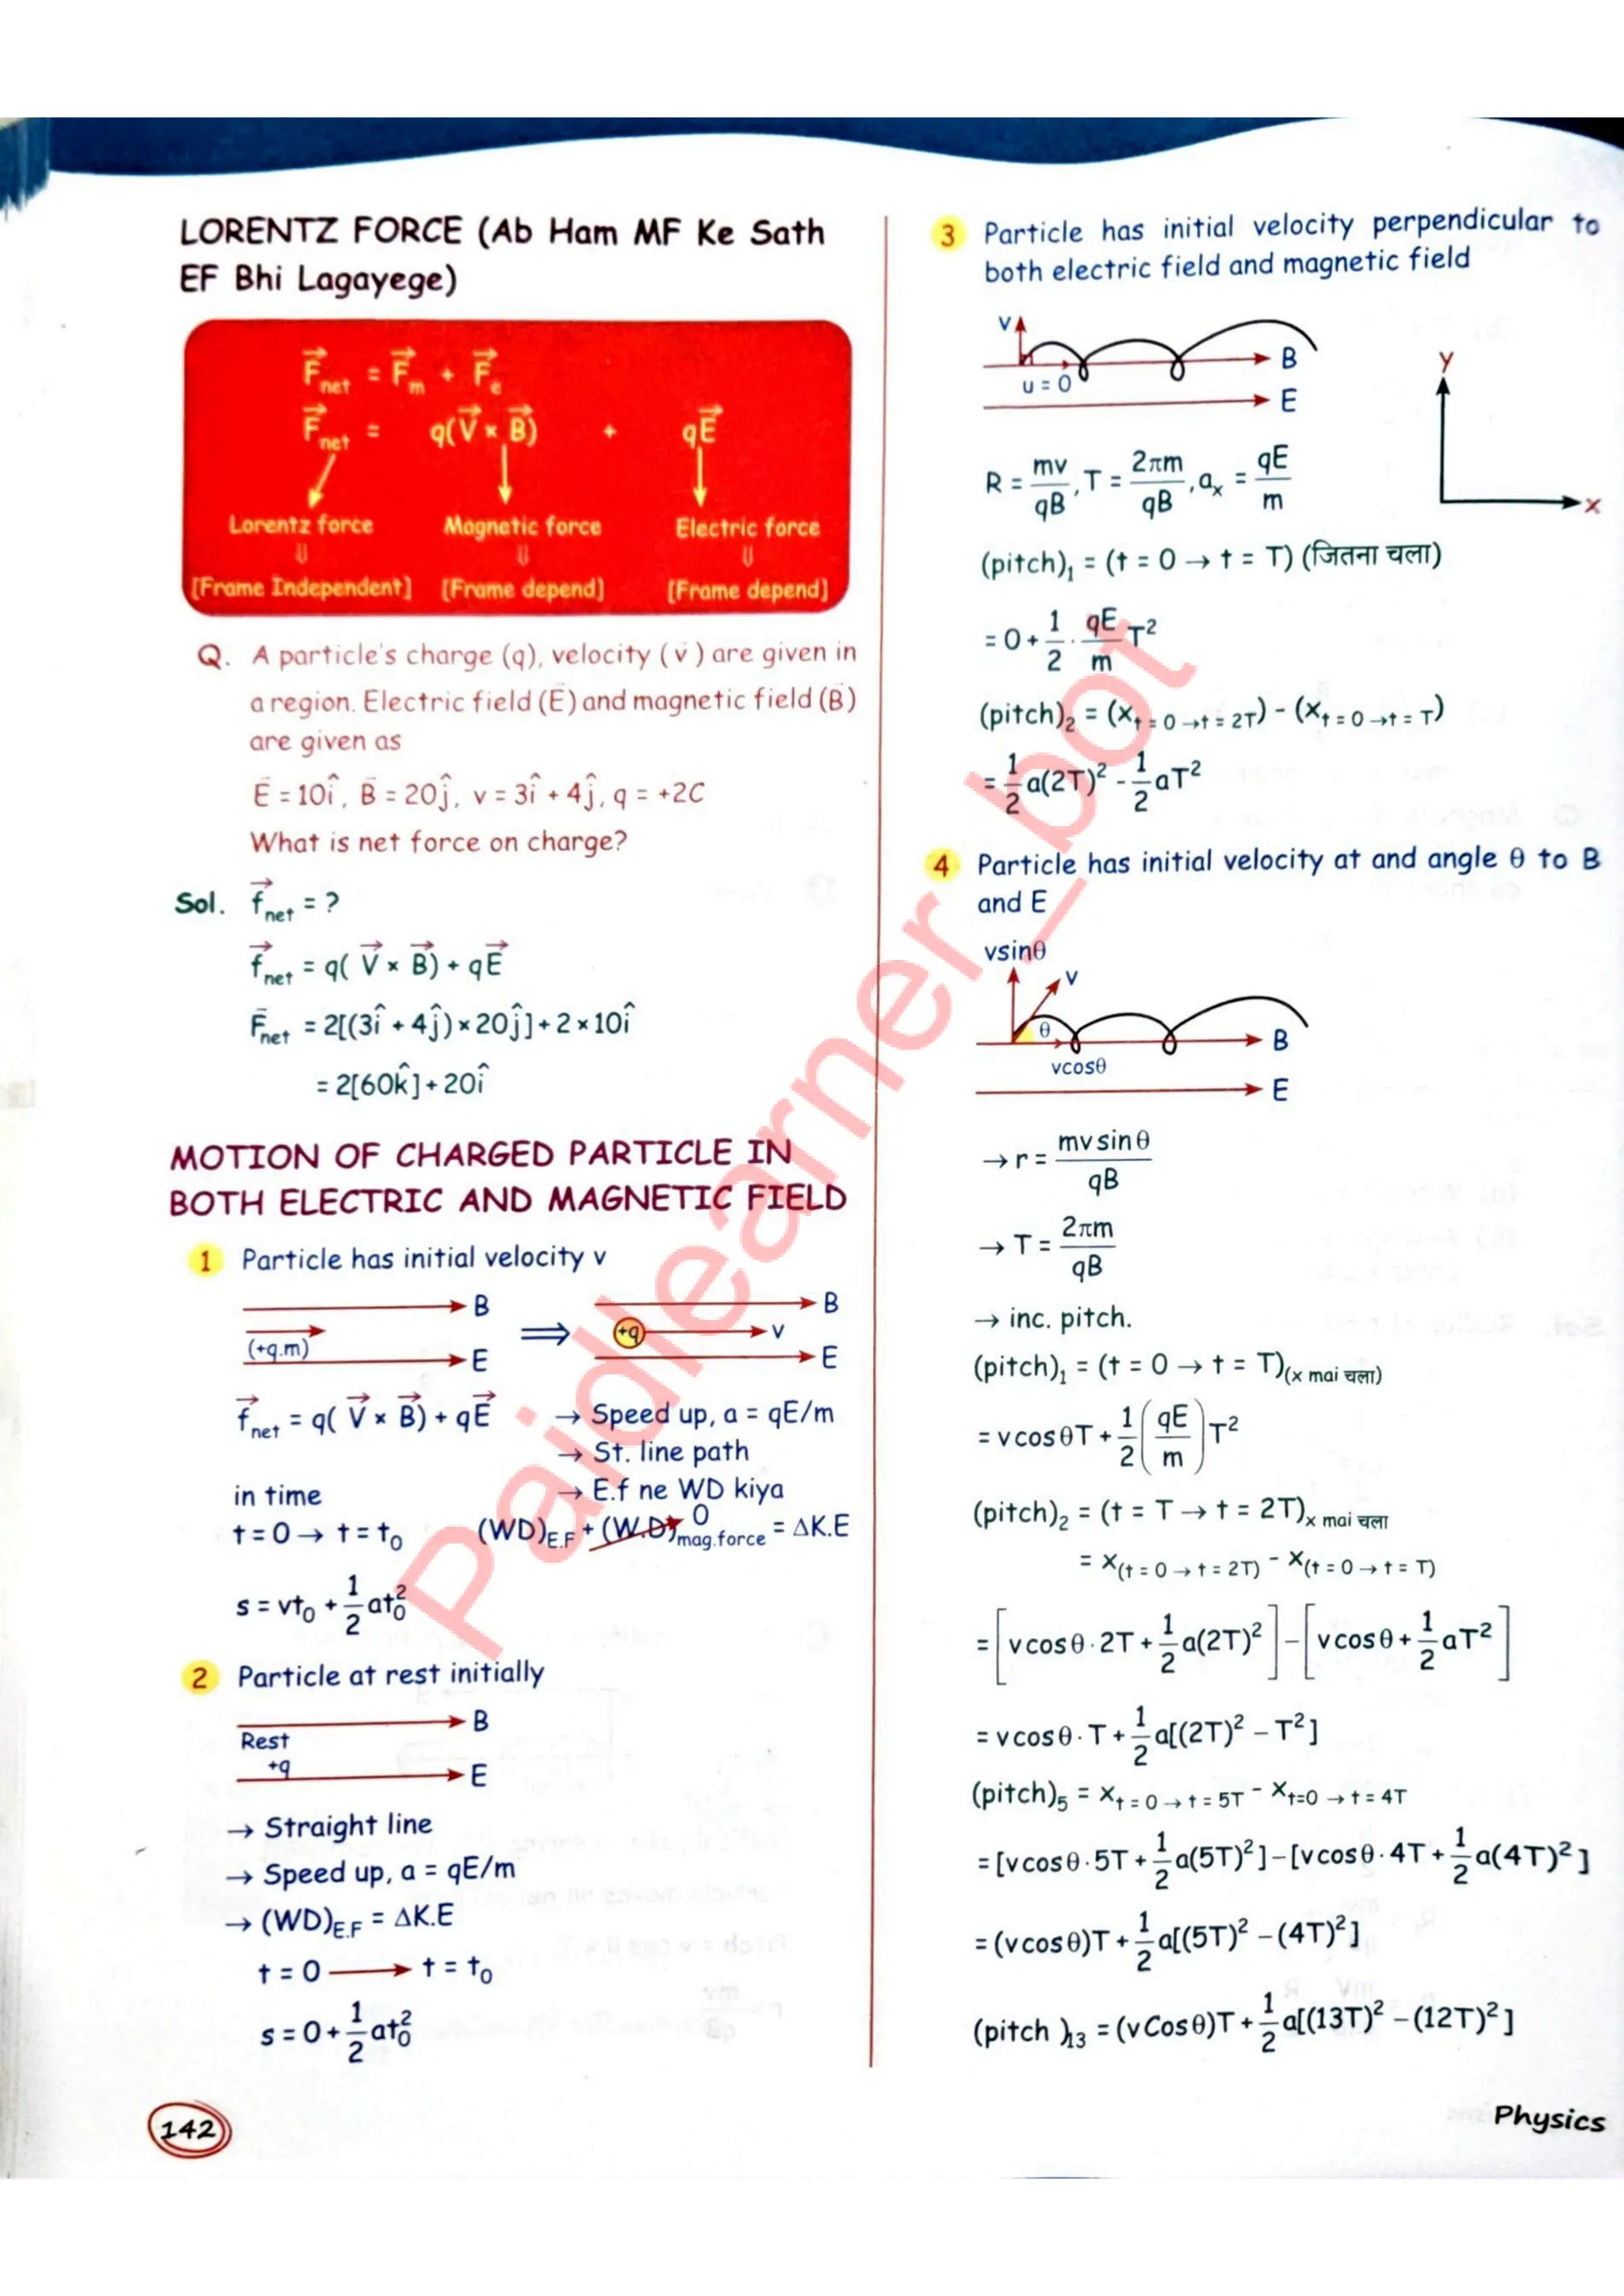 LORENTZ FORCE (Ab Ham MF Ke Sath
EF Bhi Lagayege)
F⃗net = F⃗m + F⃗e
F⃗net = q(V⃗ × B⃗) + qE⃗
Lorentz force Magnetic force Electric force
⇓ ⇓ ⇓
[Frame Independent] [Frame depend] [Frame depend]
Q. A particle's charge (q), velocity (v⃗) are given in
a region. Electric field (E⃗) and magnetic field (B⃗)
are given as
E⃗ = 10î, B⃗ = 20ĵ, v = 3î + 4ĵ, q = +2C
What is net force on charge?
Sol. f⃗net = ?
f⃗net = q(V⃗ × B⃗) + qE⃗
F⃗net = 2[(3î + 4ĵ) × 20ĵ] + 2 × 10î
= 2[60k̂] + 20î
MOTION OF CHARGED PARTICLE IN
BOTH ELECTRIC AND MAGNETIC FIELD
1 Particle has initial velocity v
B
(+q.m)
E
⇒
B
+q v
E
f⃗net = q(V⃗ × B⃗) + qE⃗ → Speed up, a = qE/m
→ St. line path
in time → E.f ne WD kiya
t = 0 → t = t₀ (WD)E.F + (W.D)mag.force 0 = ΔK.E
s = vt₀ + 1/2 at₀²
2 Particle at rest initially
B
Rest
+q
E
→ Straight line
→ Speed up, a = qE/m
→ (WD)E.F = ΔK.E
t = 0 → t = t₀
s = 0 + 1/2 at₀²
142
3 Particle has initial velocity perpendicular to
both electric field and magnetic field
v
B
u = 0
E
y
x
R = mv/qB, T = 2πm/qB, aₓ = qE/m
(pitch)₁ = (t = 0 → t = T) (जितना चला)
= 0 + 1/2 · qE/m T²
(pitch)₂ = (x t = 0 → t = 2T) - (x t = 0 → t = T)
= 1/2 a(2T)² - 1/2 aT²
4 Particle has initial velocity at and angle θ to B
and E
vsinθ
v
θ
B
vcosθ
E
→ r = mv sin θ/qB
→ T = 2πm/qB
→ inc. pitch.
(pitch)₁ = (t = 0 → t = T)(x mai चला)
= v cos θT + 1/2 (qE/m) T²
(pitch)₂ = (t = T → t = 2T)x mai चला
= x(t = 0 → t = 2T) - x(t = 0 → t = T)
= [v cos θ · 2T + 1/2 a(2T)²] - [v cos θ + 1/2 aT²]
= v cos θ · T + 1/2 a[(2T)² - T²]
(pitch)₅ = x t = 0 → t = 5T - x t=0 → t = 4T
= [v cos θ · 5T + 1/2 a(5T)²] - [v cos θ · 4T + 1/2 a(4T)²]
= (v cos θ)T + 1/2 a[(5T)² - (4T)²]
(pitch )₁₃ = (v Cos θ)T + 1/2 a[(13T)² - (12T)²]
Physics
Paidlearner_bot